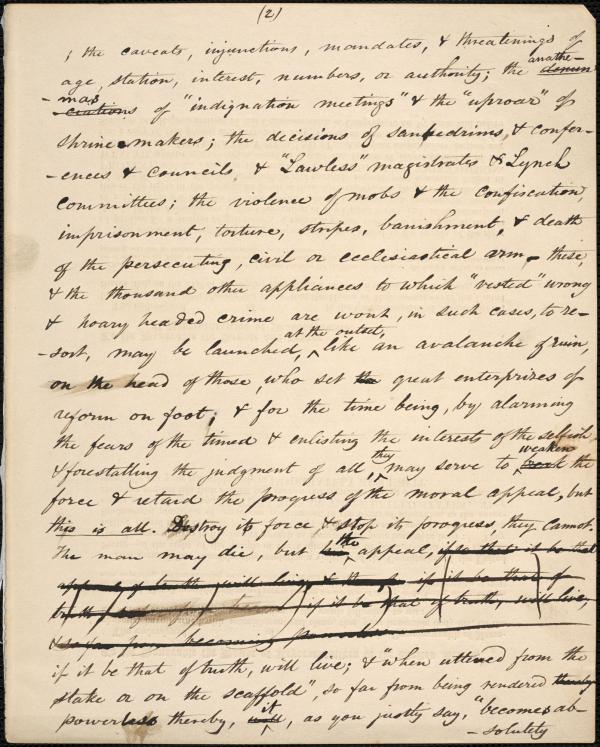 (2)
; the caveats, injunctions, mandates, & threatenings of
age, station, interest, numbers, or authority; the anathe- denun
-mas -ciations of "indignation meetings" & the "uproar" of
shrine makers; the decisions of sanhedrims, & confer-
-ences & councils, & "Lawless" magistrates & Lynch
committees; the violence of mobs & the confiscation,
imprisonment, torture, stripes, banishment, & death
of the persecuting, civil or ecclesiastical arm, these,
& the thousand other appliances to which "vested" wrong
& hoary headed crime are wont, in such cases, to re-
-sort, may be launched, at the outset, like an avalanche of ruin,
on the head of those, who set the great enterprizes of
reform on foot; & for the time being, by alarming
the fears of the timed & enlisting the interests of the selfish,
& forestalling the judgment of all, they may serve to weaken the
force & retard the progress of the moral appeal, but
this is all. Destroy its force & stop its progress, they cannot.
The man may die, but the appeal, if so that it be that
appeals of truth will live, & if it be that of
truth if it be that of truth, will live,
& so far from becoming
if it be that of truth, will live; & "when uttered from the
stake or on the scaffold", so far from being rendered thereby
powerless thereby, it, as you justly say, "becomes ab-
-solutely